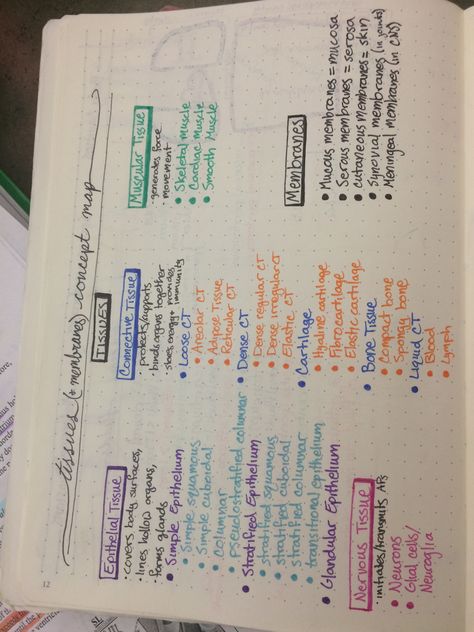 tissues (+ membranes) concept map
TISSUES
Epithelial Tissue
• covers body surfaces,
lines hollow organs,
forms glands
• Simple Epithelium
• Simple squamous
• Simple cuboidal
• columnar
• pseudostratified columnar
• Stratified Epithelium
• stratified squamous
• stratified cuboidal
• stratified columnar
• transitional epithelium
• Glandular Epithelium
Nervous Tissue
• initiates/transmits APs
• Neurons
• Glial cells/
Neuroglia
Connective Tissue
• protects/supports
• binds organs together
• stores energy + provides
immunity
• Loose CT
• Areolar CT
• Adipose Tissue
• Reticular CT
• Dense CT
• Dense regular CT
• Dense irregular CT
• Elastic CT
• Cartilage
• Hyaline cartilage
• Fibrocartilage
• Elastic cartilage
• Bone Tissue
• Compact bone
• Spongy bone
• Liquid CT
• Blood
• Lymph
Muscular Tissue
• generates force
• movement
• Skeletal muscle
• Cardiac Muscle
• Smooth Muscle
Membranes
• Mucous membranes = mucosa
• Serous membranes = serosa
• cutaneous membranes = skin
• Synovial membranes (in joints)
• Meningeal membranes (in CNS)
12